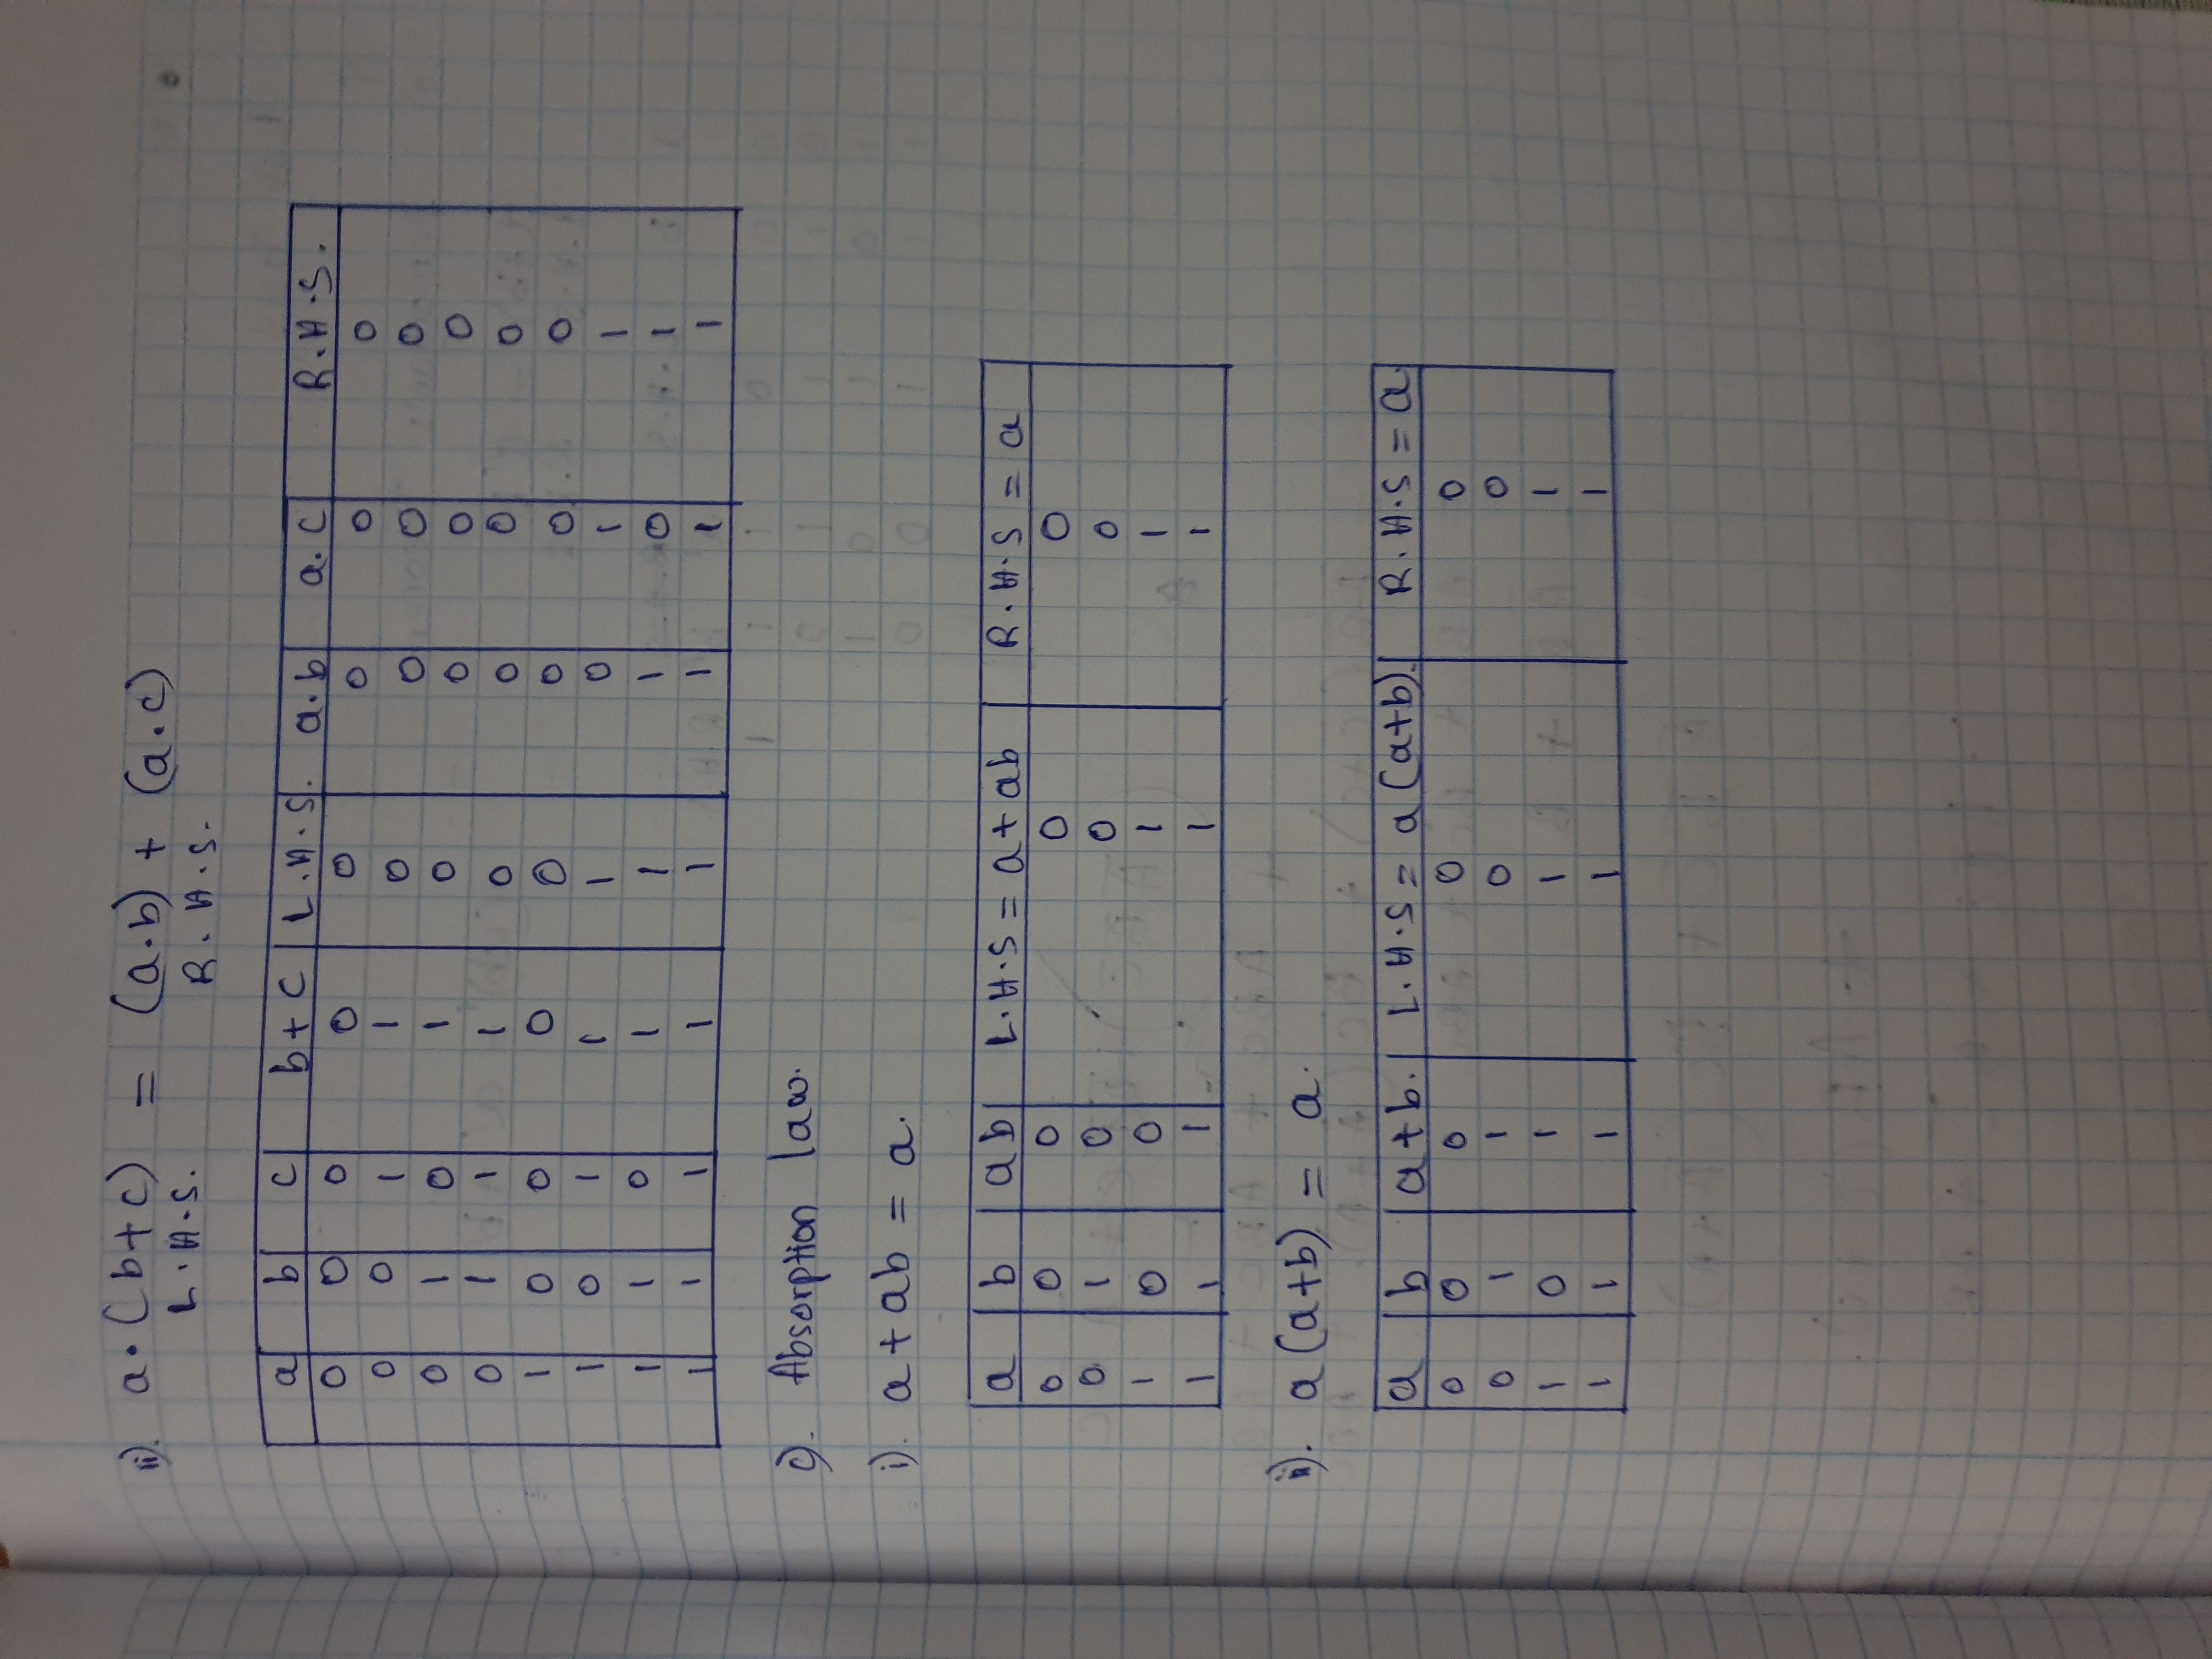 ii). a·(b+c) = (a·b) + (a.c)
L.H.S. R.H.S.
a b c b+c L.H.S. a.b a.c R.H.S.
0 0 0 0 0 0 0 0
0 0 1 1 0 0 0 0
0 1 0 1 0 0 0 0
0 1 1 1 0 0 0 0
1 0 0 0 0 0 0 0
1 0 1 1 1 0 1 1
1 1 0 1 1 1 0 1
1 1 1 1 1 1 1 1
c). Absorption law.
i). a + ab = a.
a b ab L.H.S = a + ab R.H.S = a
0 0 0 0 0
0 1 0 0 0
1 0 0 1 1
1 1 1 1 1
ii). a (a+b) = a.
a b a+b. L.H.S = a (a+b). R.H.S = a.
0 0 0 0 0
0 1 1 0 0
1 0 1 1 1
1 1 1 1 1